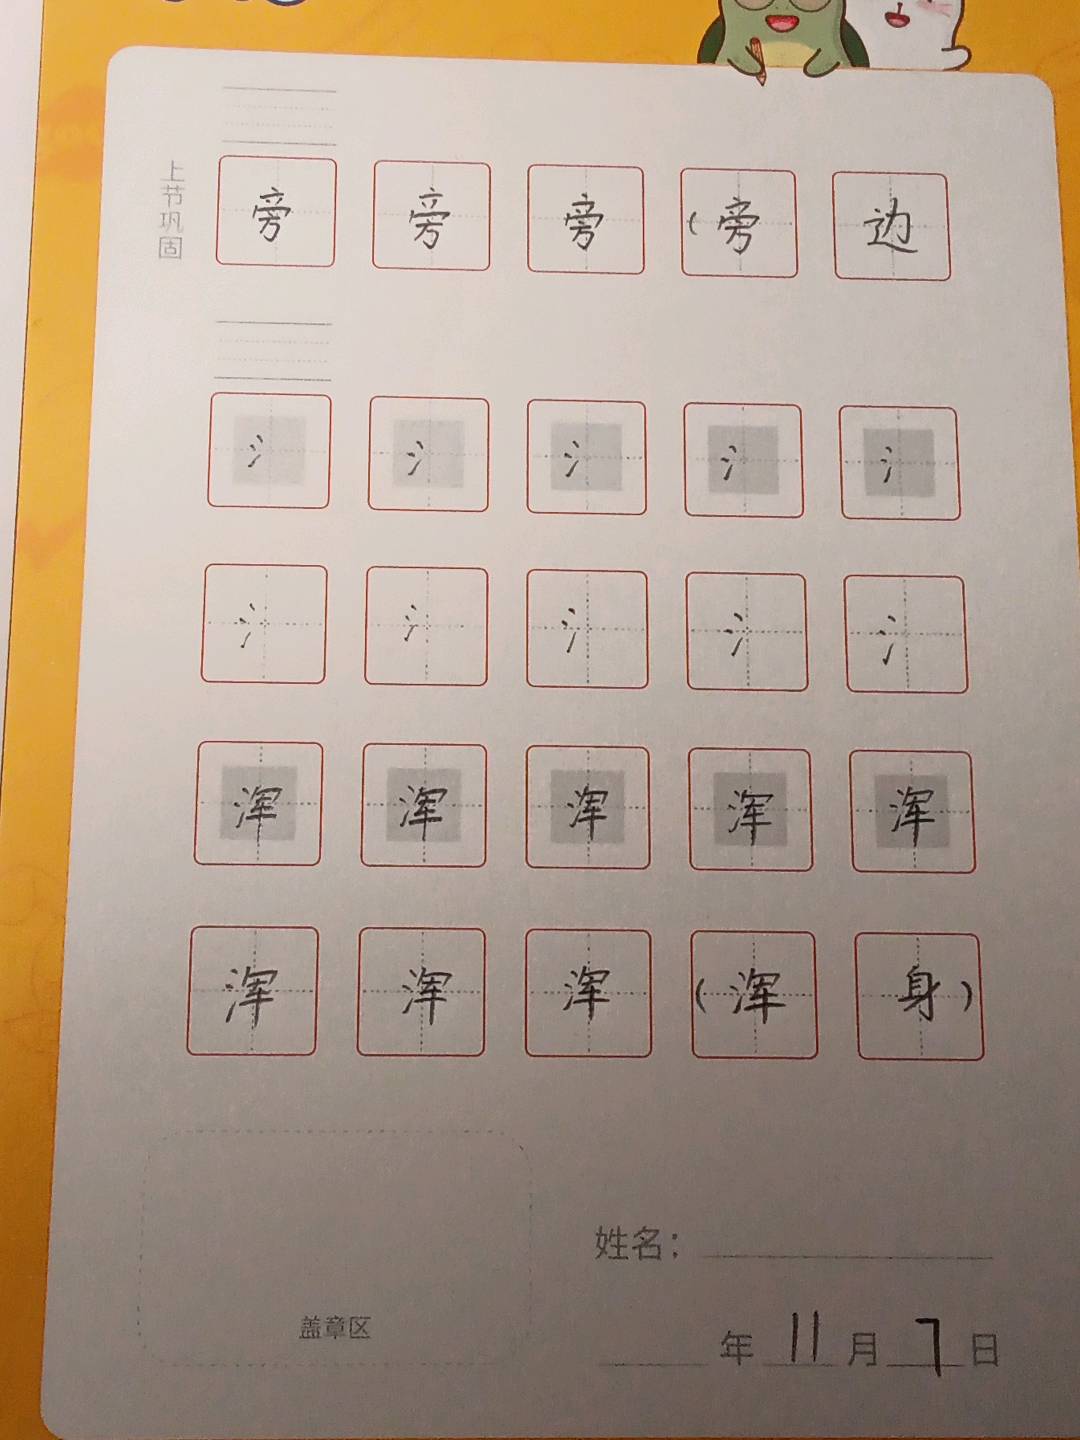 上节巩固
旁 旁 旁 (旁 边
氵 氵 氵 氵 氵
氵 氵 氵 氵 氵
浑 浑 浑 浑 浑
浑 浑 浑 (浑 身)
姓名：
盖章区
年 11 月 7 日